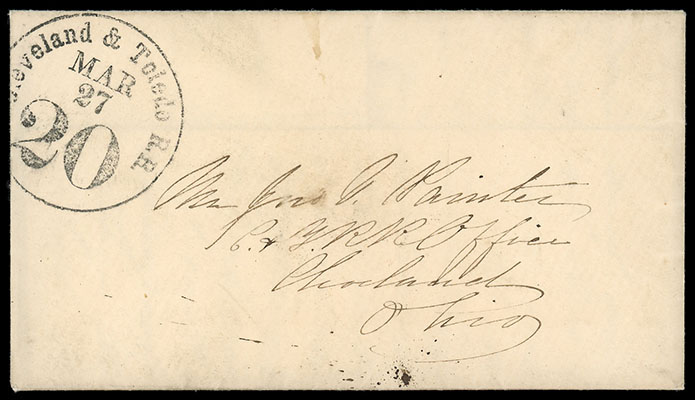 Cleveland & Toledo R.R.
MAR
27
20
Mr Jno V. Painter
C. & T. R R Office
Cleveland
Ohio